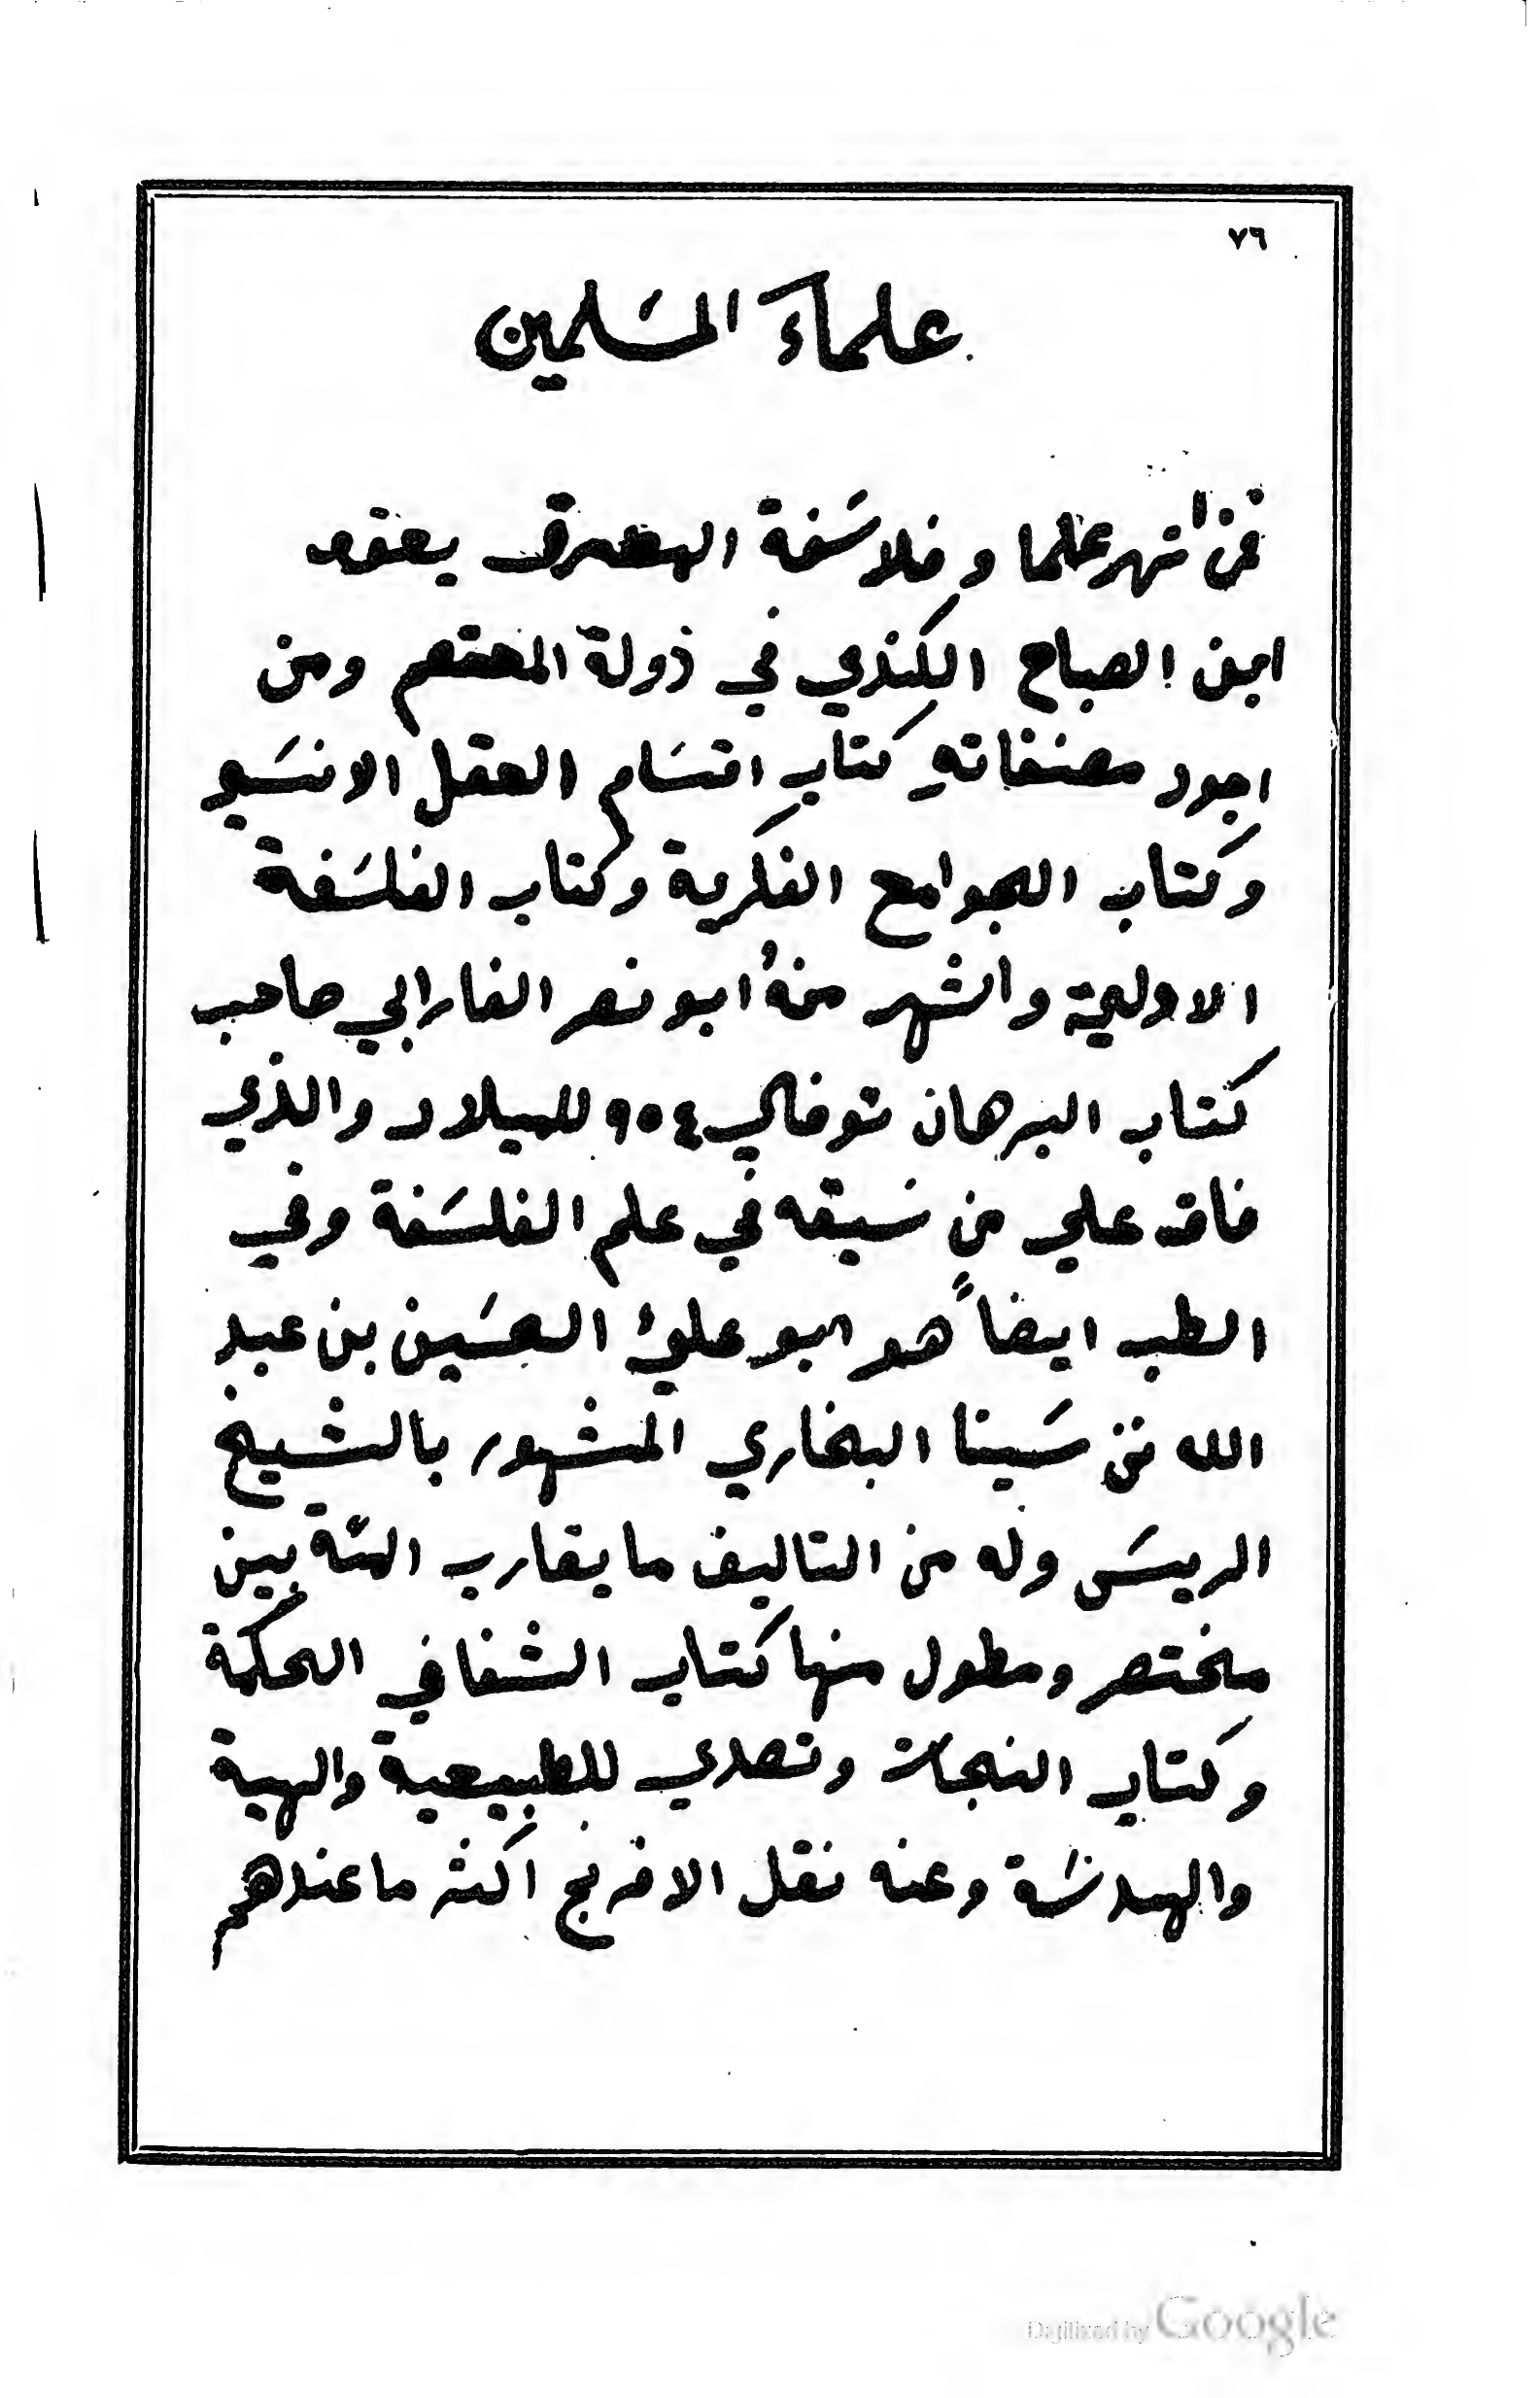 ٧٦
علماء المسلمين
فمن اشهر علما وفلاسفة المشرق يعقوب
ابن الصباح الكندي في دولة المعتصم ومن
اجود مصنفاته كتاب اقسام العقل الانسي
وكتاب الجوامع الفكرية وكتاب الفلسفة
الاولية واشهر منهُ ابو نصر الفارابي صاحب
كتاب البرهان توفي ٩٥٤ للميلاد والذي
فاق علي من سبقه في علم الفلسفة وفي
الطب ايضاً هو ابو علي الحسين بن عبد
الله بن سينا البخاري المشهور بالشيخ
الريس وله من التاليف ما يقارب المئة بين
مختصر ومطول منها كتاب الشفا في الحكمة
وكتاب النجاة وتصدي للطبيعية والهية
والهدنسة وعنه نقل الافرنج اكثر ما عندهم
Digitized by Google